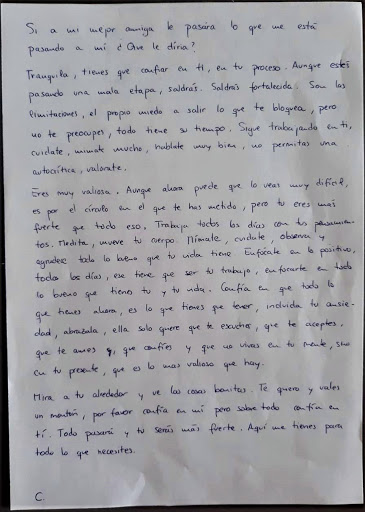 Si a mi mejor amiga le pasara lo que me está
pasando a mí ¿Que le diría?
Tranquila, tienes que confiar en tí, en tu proceso. Aunque estés
pasando una mala etapa, saldrás. Saldrás fortalecida. Son las
limitaciones, el propio miedo a salir lo que te bloquea, pero
no te preocupes, todo tiene su tiempo. Sigue trabajando en ti,
cuidate, mimate mucho, hablate muy bien, no permitas una
autocrítica, valorate.
Eres muy valiosa. Aunque ahora puede que lo veas muy difícil,
es por el círculo en el que te has metido, pero tu eres más
fuerte que todo eso. Trabaja todos los días con tus pensamien-
tos. Medita, mueve tu cuerpo. Mímate, cuidate, observa y
agradece todo lo bueno que tu vida tiene. Enfócate en lo positivo,
todos los días, ese tiene que ser tu trabajo, enfocarte en todo
lo bueno que tienes tu y tu vida. Confía en que todo lo
que tienes ahora, es lo que tienes que tener, incluida tu ansie-
dad, abrazala, ella solo quiere que te escuches, que te aceptes,
que te ames y, que confíes y que no vivas en tu mente, sino
en tu presente, que es lo mas valioso que hay.
Mira a tu alrededor y ve las cosas bonitas. Te quiero y vales
un montón, por favor confía en mí pero sobre todo confía en
tí. Todo pasará y tu serás más fuerte. Aquí me tienes para
todo lo que necesites.
C.